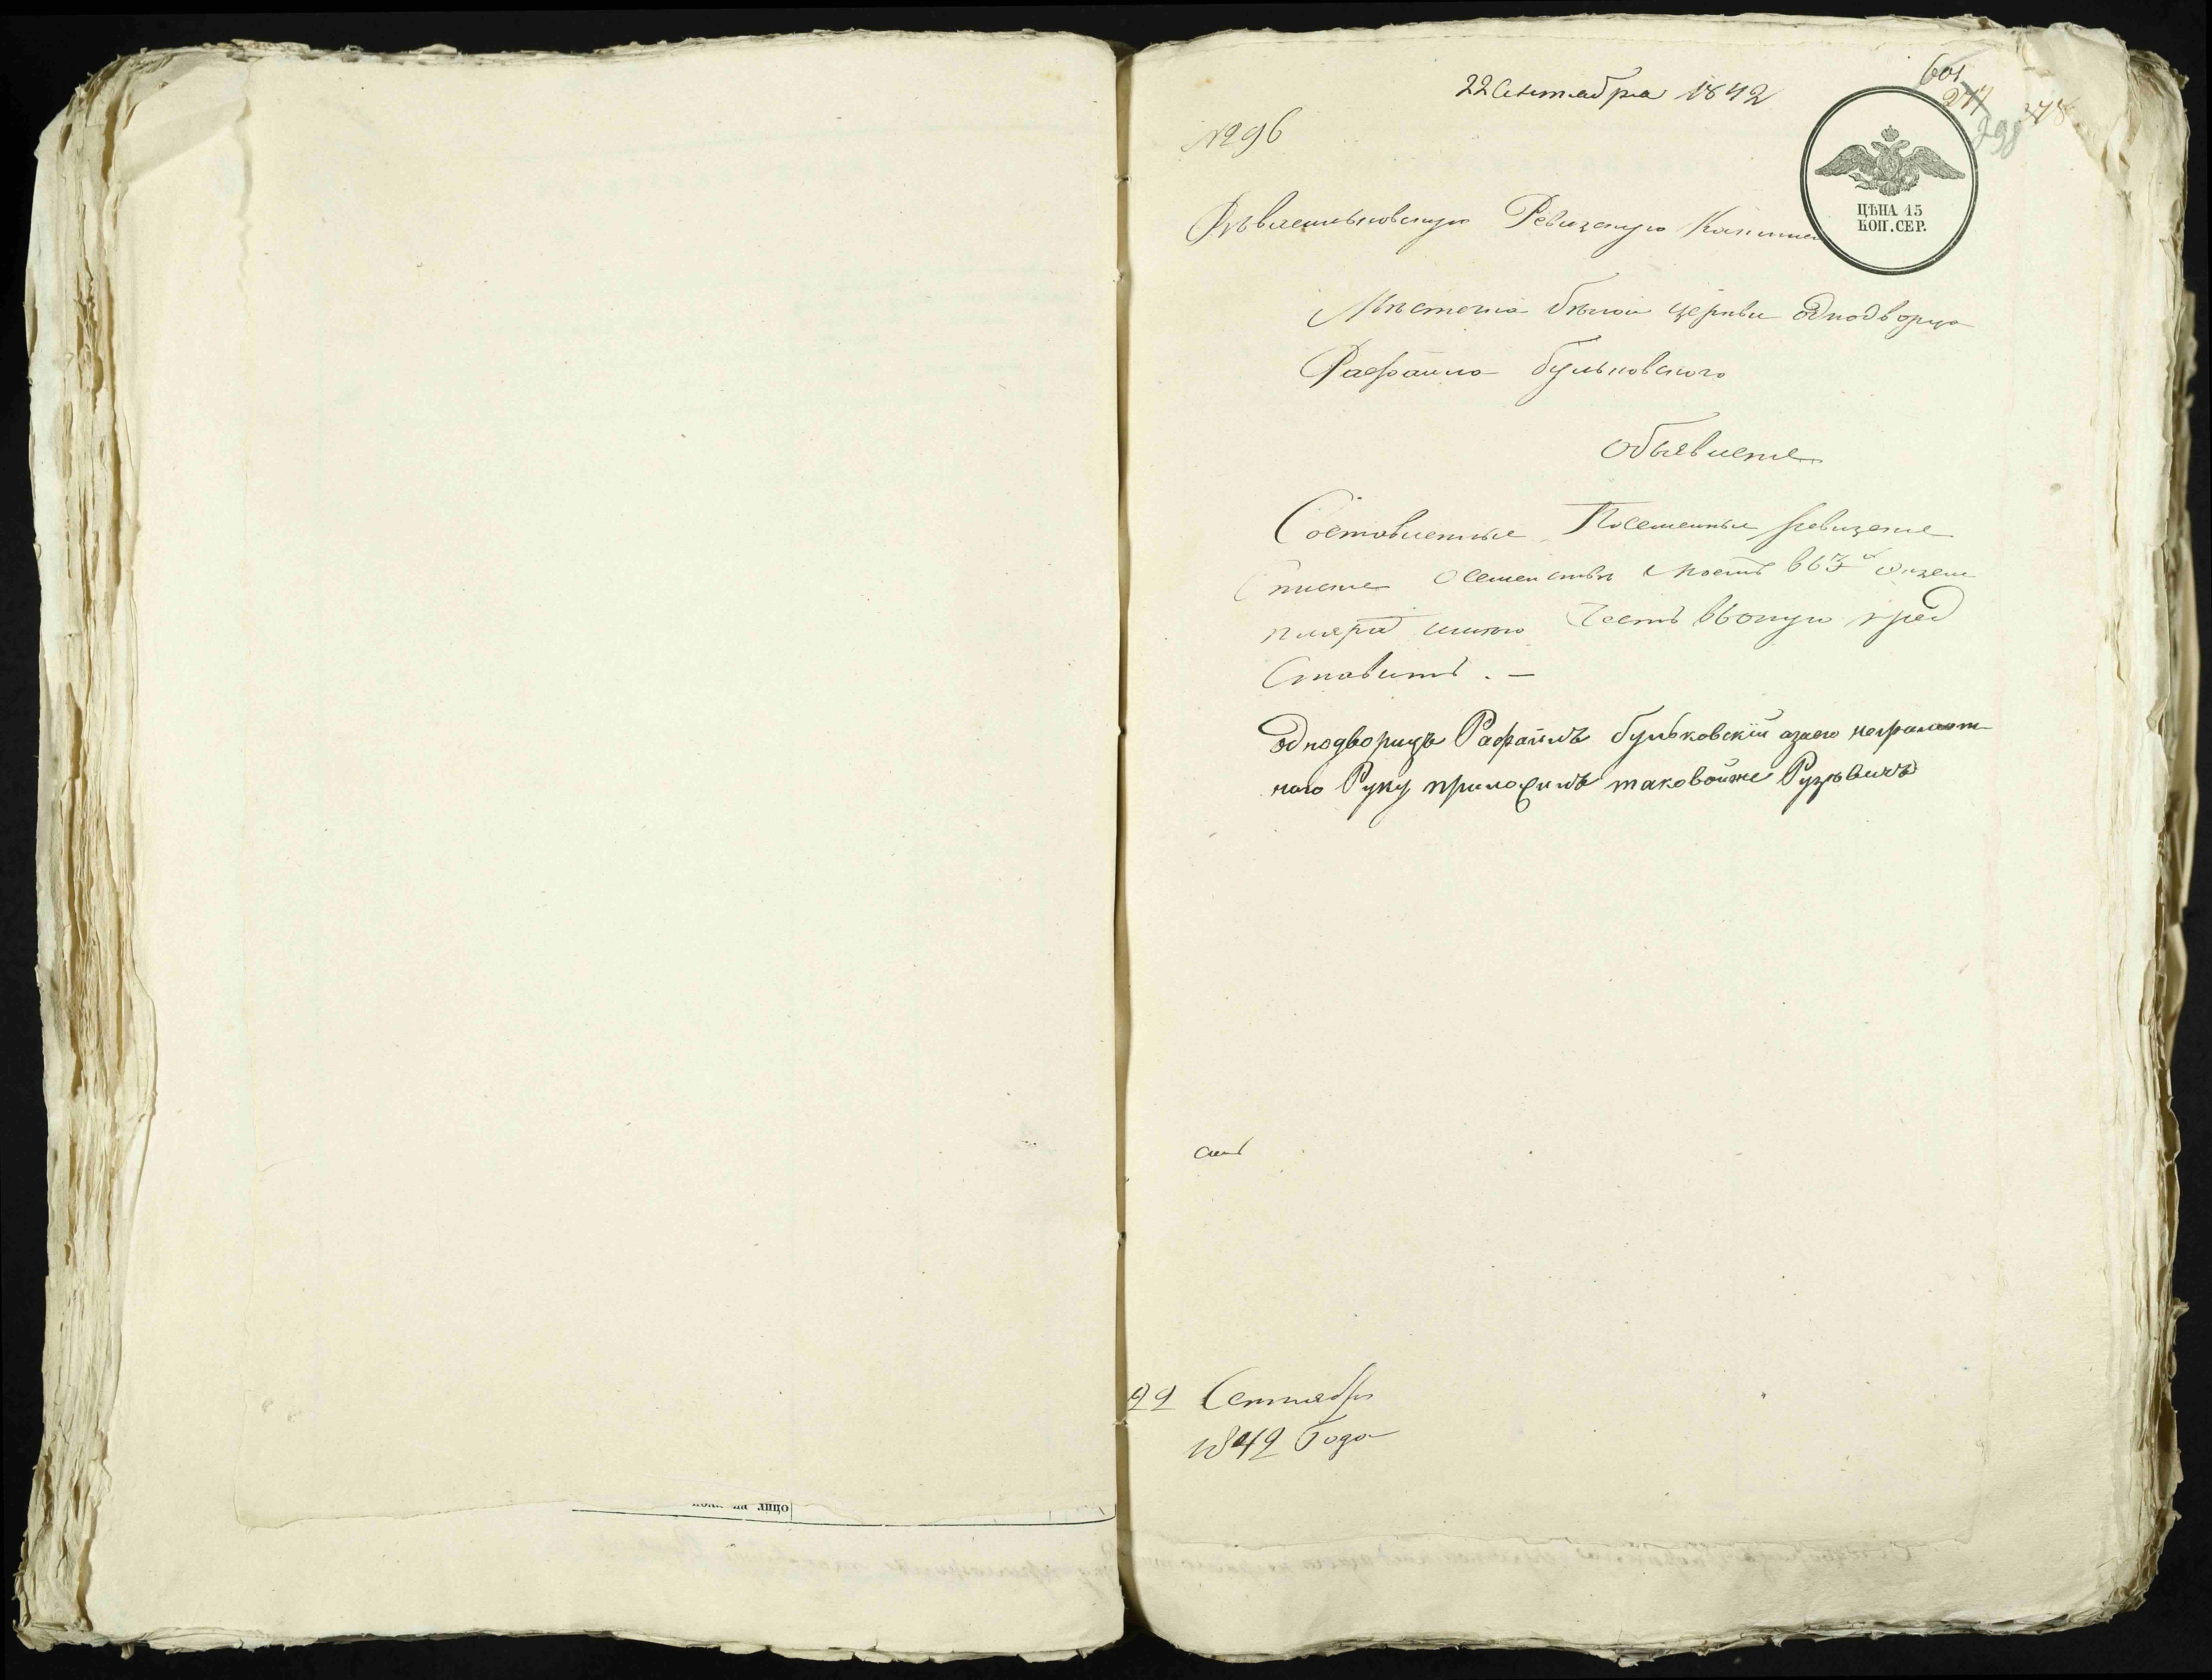 22 Сентября 1842
601
277
378
298
№296
ЦѢНА 15
КОП. СЕР.
Въ Васильковскую Ревизскую Комиссию
Мѣстечка бѣлой церкви Однодворца
Рафаила бульковского
Объявление
Составленные Посемейные ревизские
Списки о семействѣ Моемъ в 3х экзем
плярах имею Честь вЬоную пред
Ставить. —
Однодворецъ Рафаилъ бульковскій азаего неграмот-
наго Руку приложилъ таковойже
22 Сентября
1842 Года